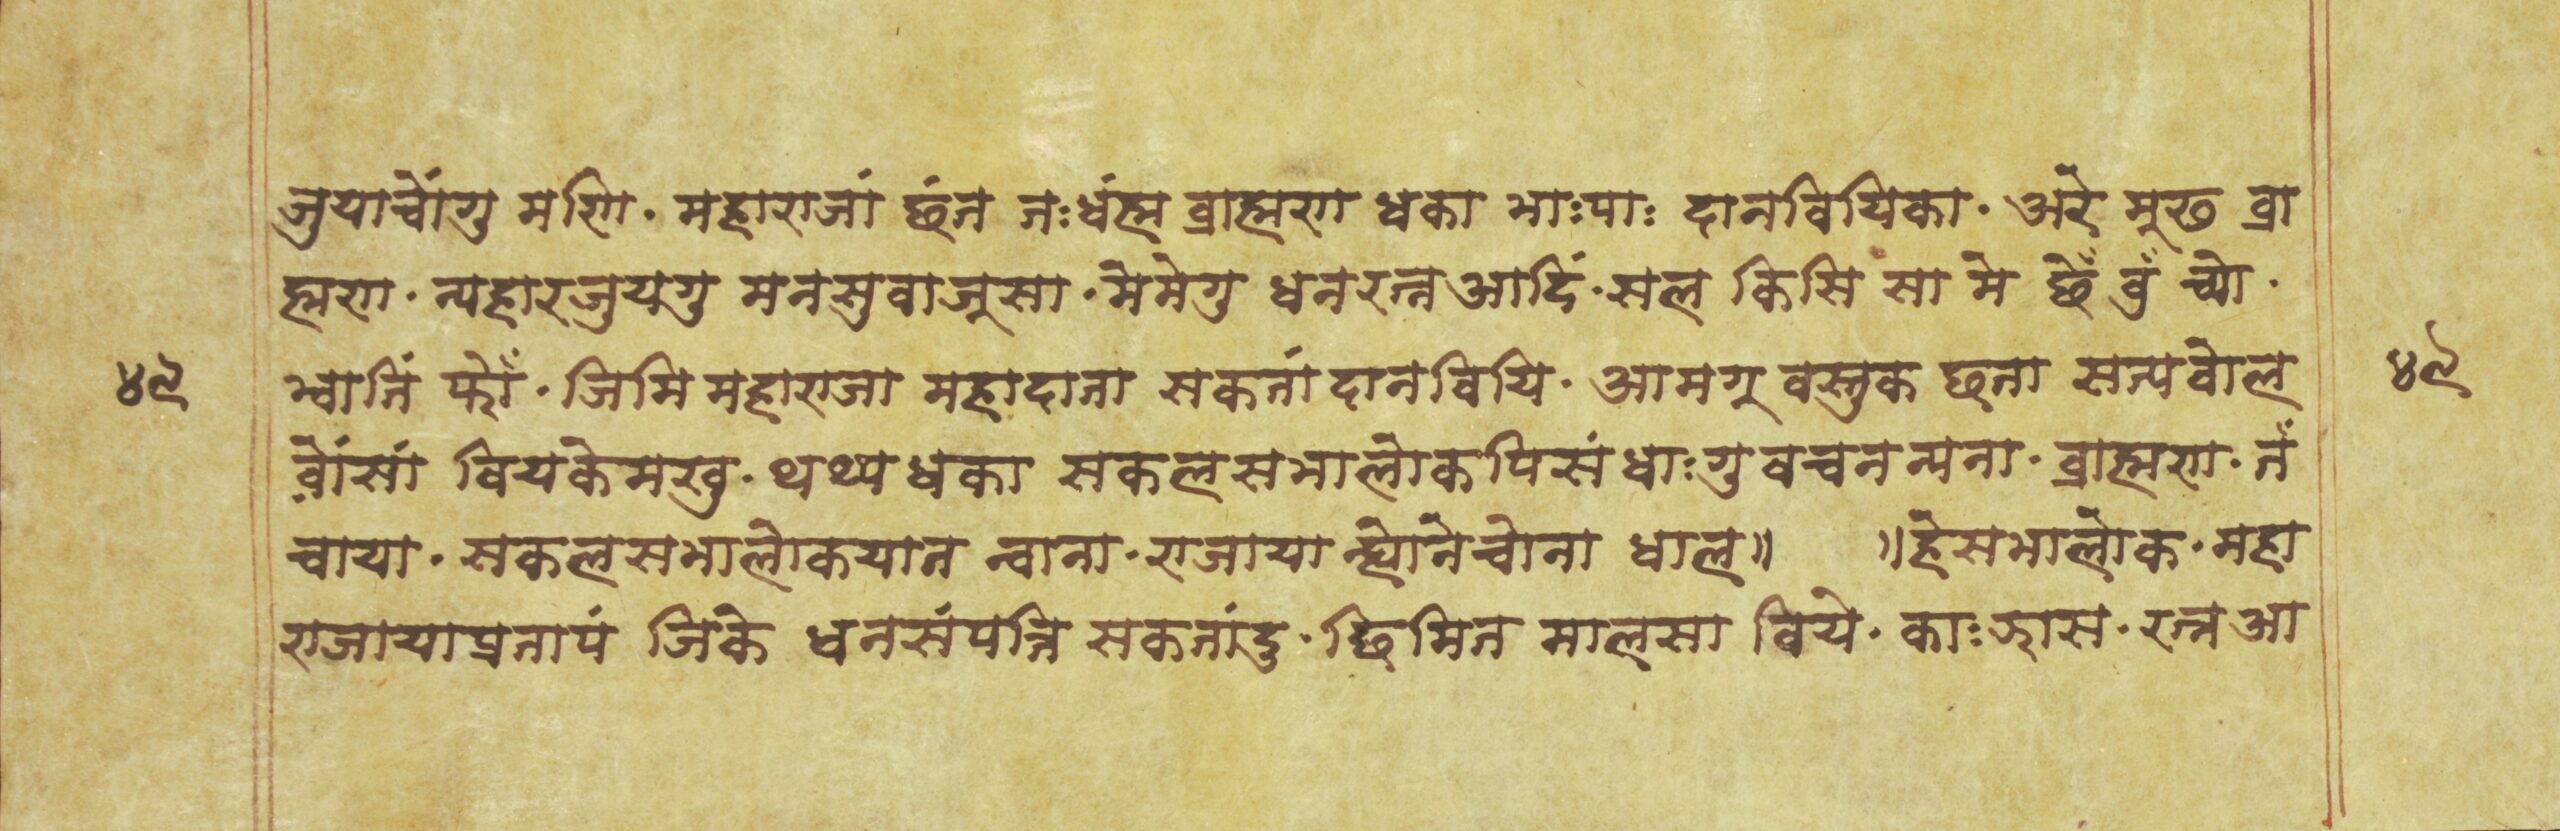 जुयाचोंगु मणि. महाराजां छंत तःधंह्म ब्राह्मण धका भाःपाः दानवियिका. अरे मुख ब्रा
ह्मण. त्यहारजुयगु मनसुवाजूसा. मेमेगु धनरत्नआदिं. सल किसि सा मे छेँ वुँ च्यो.
भ्वातिं फोँ. जिमि महाराजा महादाता सकतांदानवियि. आमगू वस्तुक छता सत्यवोल
वोंसां वियकेमखु. थथ्य धका सकलसभालोकपिसं धाःगु वचन न्यना. ब्राह्मण. तँ
चाया. सकलसभालोकयात न्वाना. राजाया न्ह्योनेचोना धाल॥ ॥हेसभालोक. महा
राजायाप्रतापं जिके धनसंपत्ति सकतांदु. छिमित मालसा विये. काःझास. रत्नआ
४९
४९